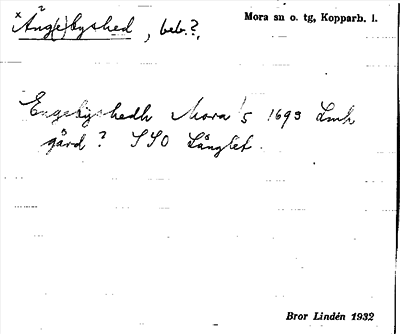 x Äng(e)byshed, beb.?,
Mora sn o. tg, Kopparb. l.
Engebyshedh Mora s 1693 Lmh
gård? SSO Långlet.
Bror Lindén 1932